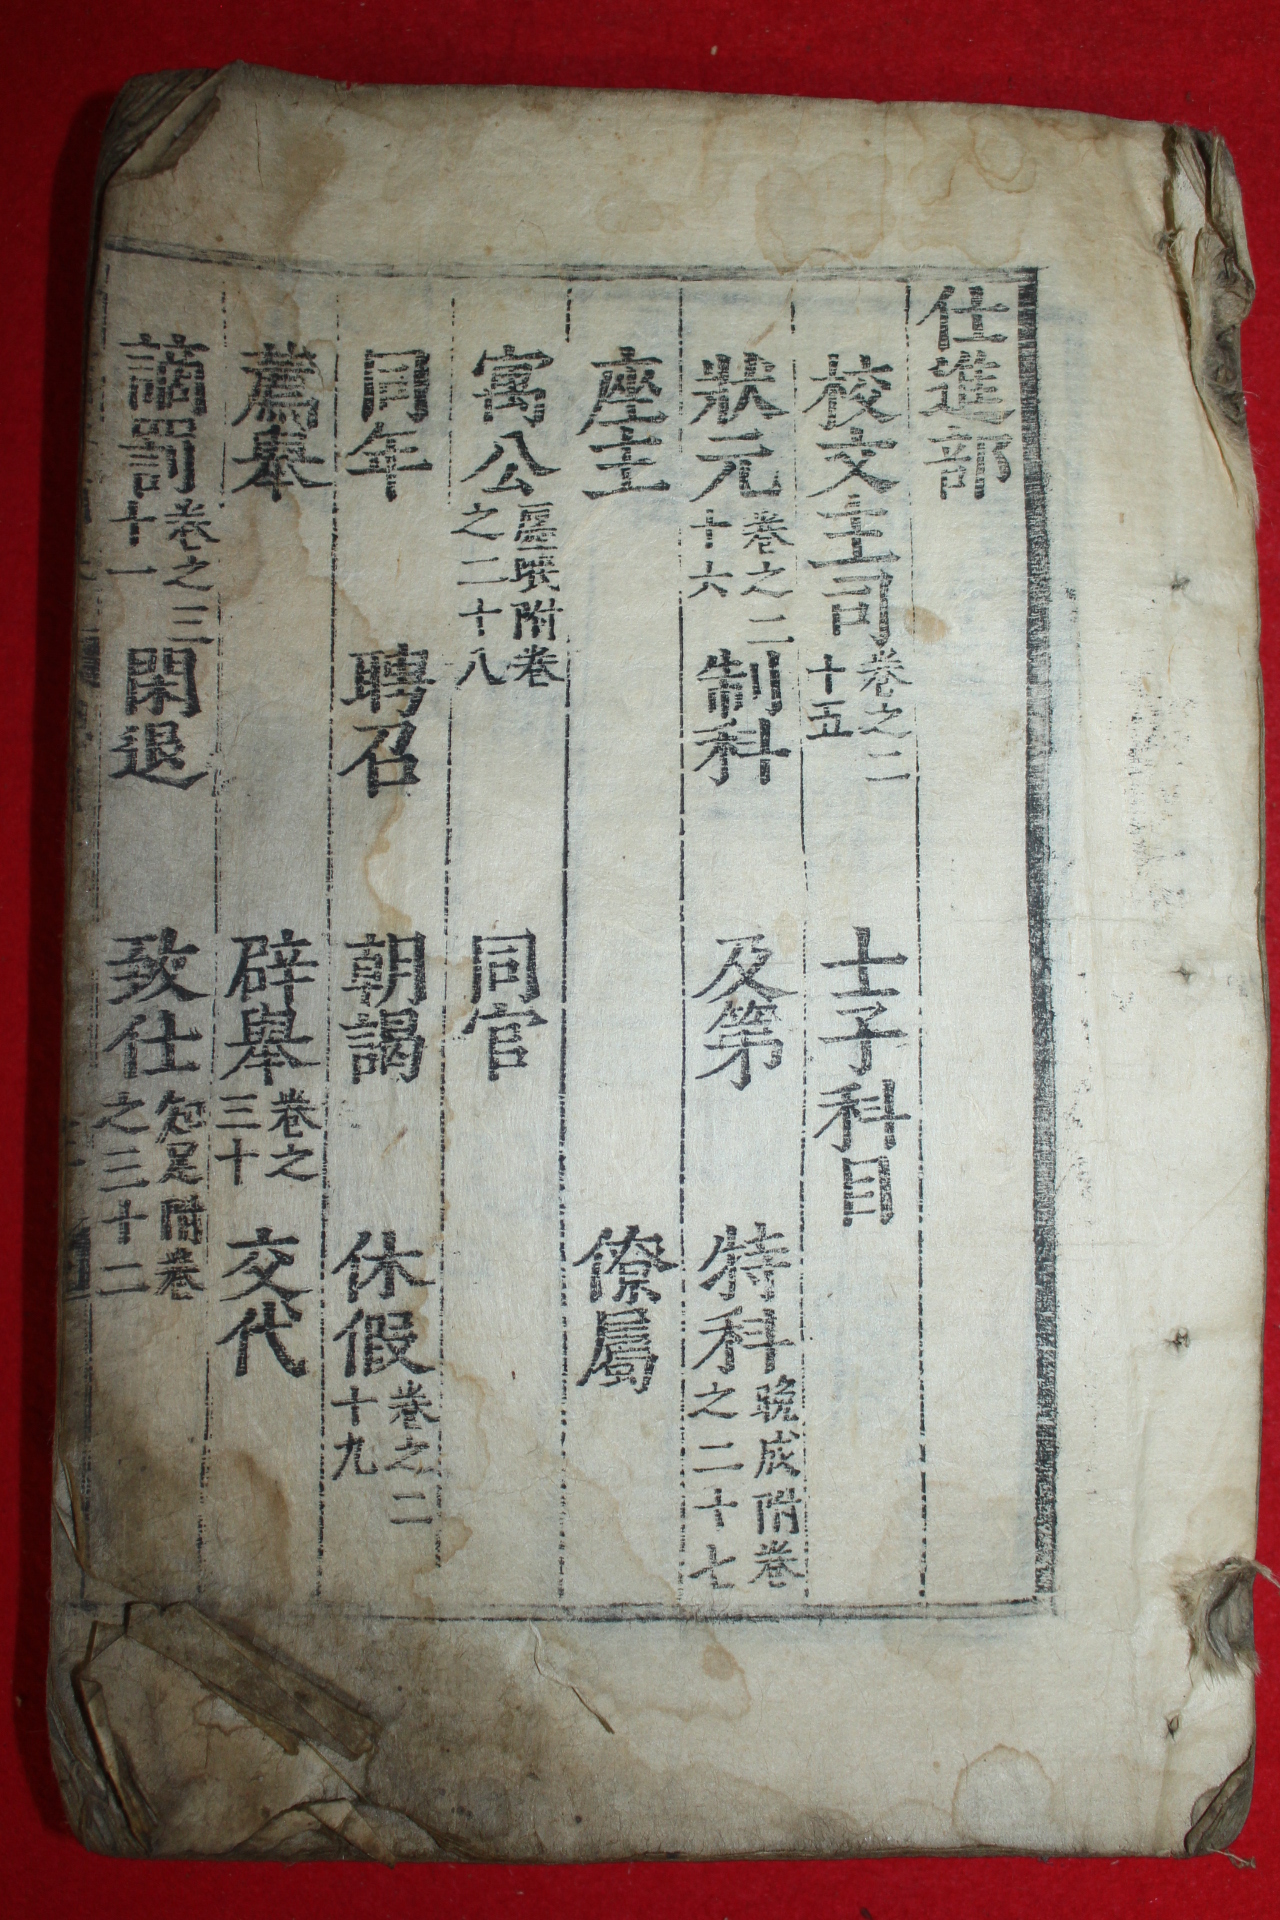 仕進部
校文主司卷之二十五 士子科目
狀元卷之二十六 制科 及第 特科晩成附卷之二十七
座主 僚屬
寓公廛氓附卷之二十八 同官
同年 聘召 朝謁 休假卷之二十九
薦舉 辟舉卷之三十 交代
謫罰卷之三十一 閑退 致仕知足附卷之三十二